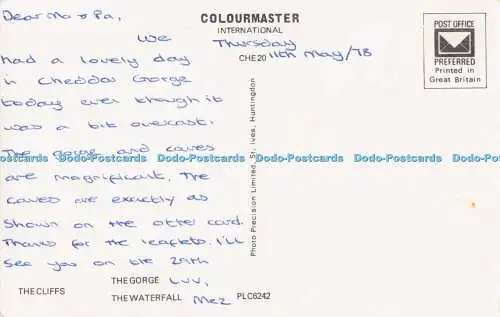 Dear Ma & Pa,
We
had a lovely day
in Cheddar Gorge
today even though it
was a bit overcast.
The gorge and caves
are magnificant. The
caves are exactly as
shown on the other card.
Thanks for the leaflets. I'll
see you on the 29th
Luv,
Mez
COLOURMASTER
INTERNATIONAL
Thursday
CHE20 11th May/78
POST OFFICE
PREFERRED
Printed in
Great Britain
Photo Precision Limited, St. Ives, Huntingdon
Dodo-Postcards Dodo-Postcards Dodo-Postcards Dodo-Postcards Dodo-Postcards
THE CLIFFS
THE GORGE
THE WATERFALL
PLC6242